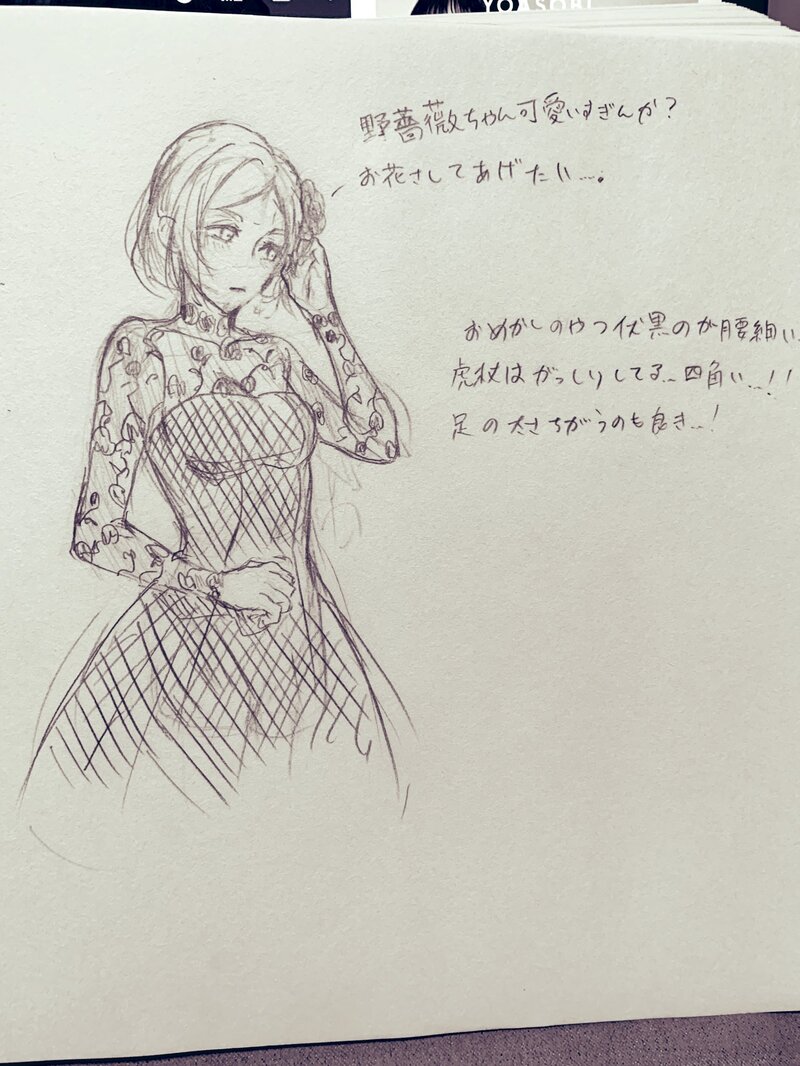 YOASOBI
野薔薇ちゃん可愛いすぎんか?
お花さしてあげたい…。
おめかしのやつ伏黒のが腰細い、
虎杖はがっしりしてる…四角い…!!
足の太さちがうのも良き…!